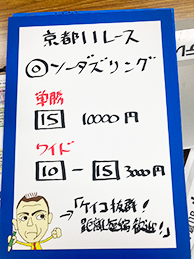 京都11レース
◎ソーダズリング
単勝
15 10000円
ワイド
10 - 15 3000円
→「ケイコ抜群!
距離短縮歓迎!」